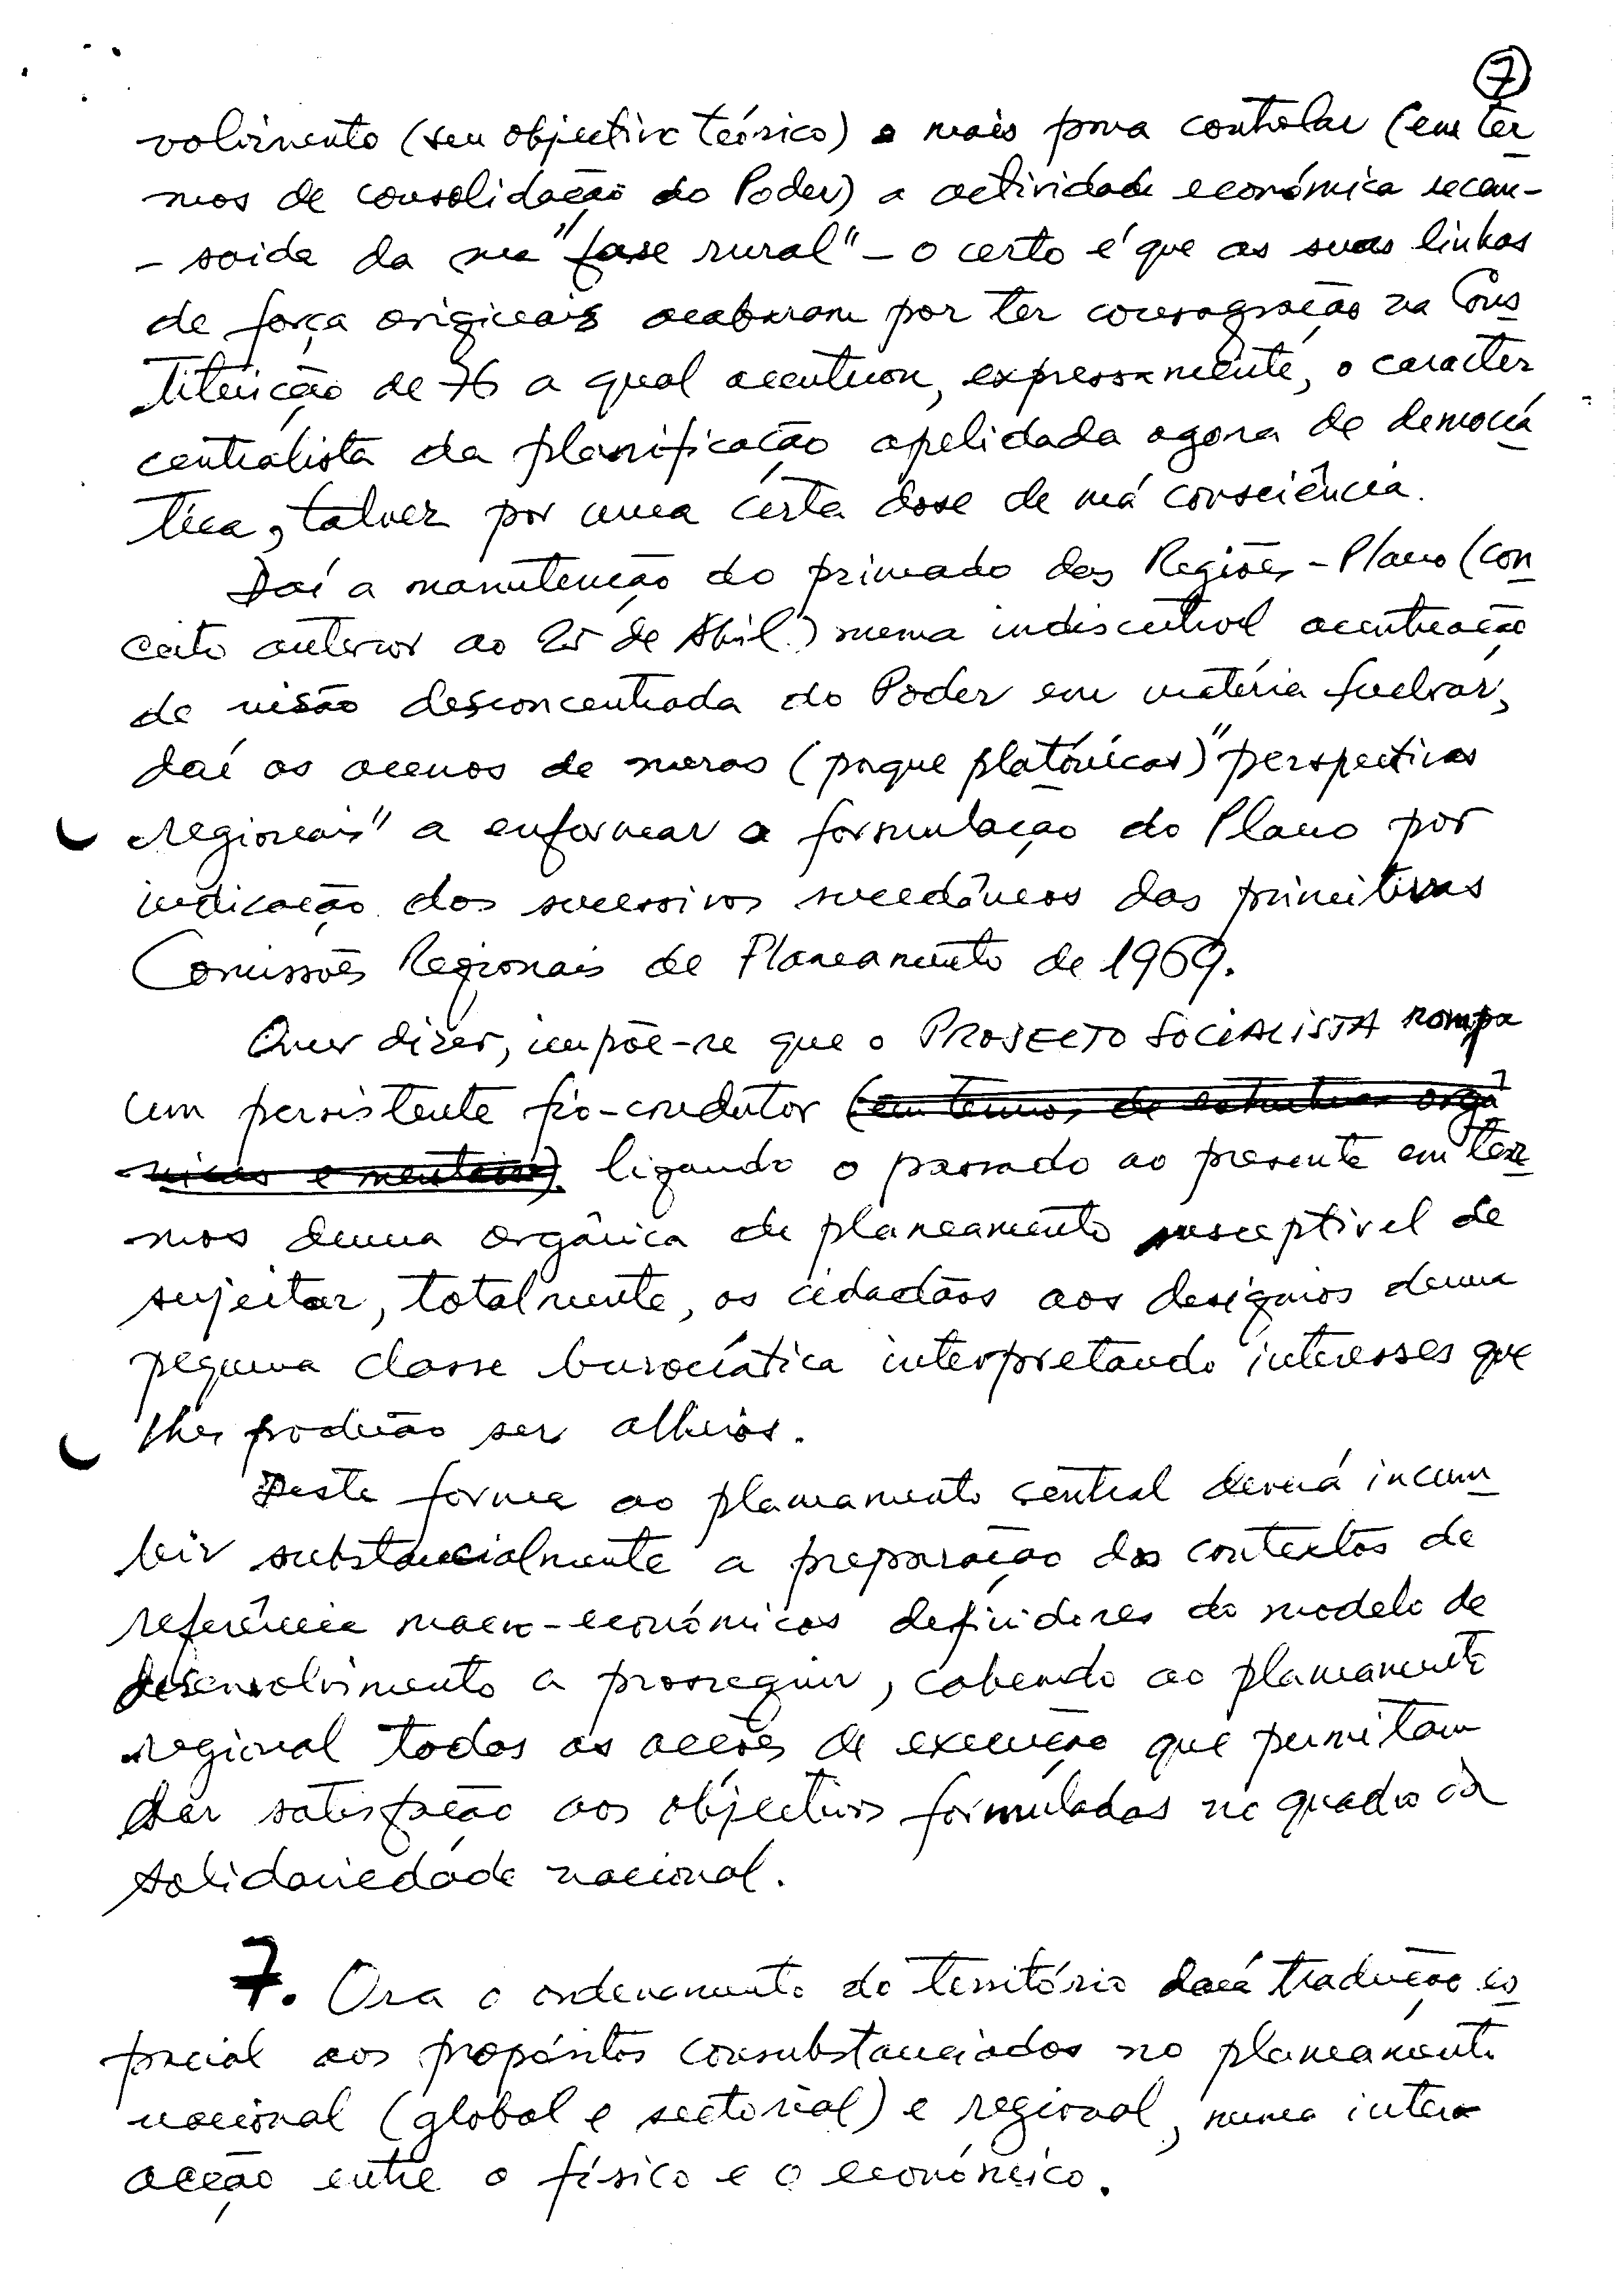 7
volvimento (seu objectivo teórico) e mais para controlar (em ter
mos de consolidação do Poder) a actividade económica recem-
- saida da sua "fase rural" - o certo é que as suas linhas
de força originais acabaram por ter consagração na Cons
tituição de 76 a qual acentuou, expressamente, o caracter
centralista da planificação apelidada agora de democrá
tica, talvez por uma certa dose de má consciência.
Daí a manutenção do primado das Regiões - Plano (con
ceito anterior ao 25 de Abril!) numa indiscutivel acentuação
de visão desconcentrada do Poder em matéria fulcral,
daí os acenos de meras (porque platónicas) "perspectivas
regionais" a enformar a formulação do Plano por
indicação dos sucessivos sucedâneos das primitivas
Comissões Regionais de Planeamento de 1969.
Quer dizer, impõe-se que o PROJECTO SOCIALISTA rompa
um persistente fio-condutor (em termos de estruturas orgâ
nicas e mentais) ligando o passado ao presente em ter
mos duma orgânica de planeamento susceptivel de
sujeitar, totalmente, os cidadãos aos designios duma
pequena classe burocrática interpretando interesses que
lhes poderão ser alheios.
Desta forma ao planeamento central deverá incum
bir substancialmente a preparação dos contextos de
referência macro-económicos definidores do modelo de
desenvolvimento a prosseguir, cabendo ao planeamento
regional todas as acções de execução que permitam
dar satisfação aos objectivos formulados no quadro da
solidariedade nacional.
7. Ora o ordenamento do território dará tradução es
pacial aos propósitos consubstanciados no planeamento
nacional (global e sectorial) e regional, numa inter
acção entre o físico e o económico.